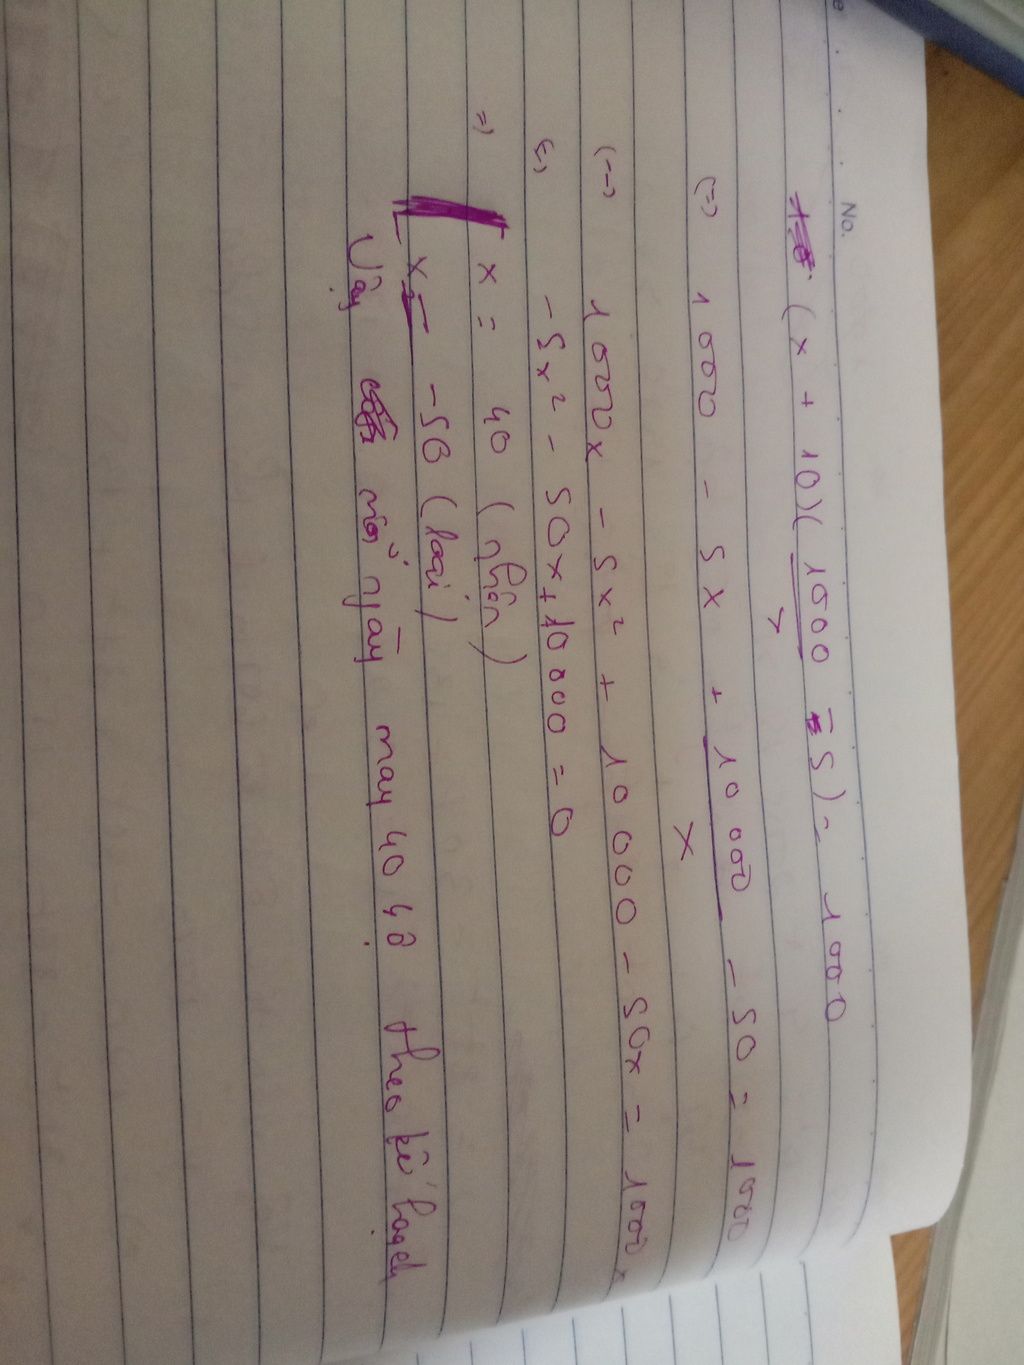 No.
(x + 10)(1000/x - 5) = 1000
(=) 1000 - 5x + 10000/x - 50 = 1000
(=) 1000x - 5x² + 10000 - 50x = 1000x
(=) -5x² - 50x + 10000 = 0
=) [ x = 40 (nhận)
[ x = -50 (loại)
Vậy mỗi ngày may 40 theo kế hoạch